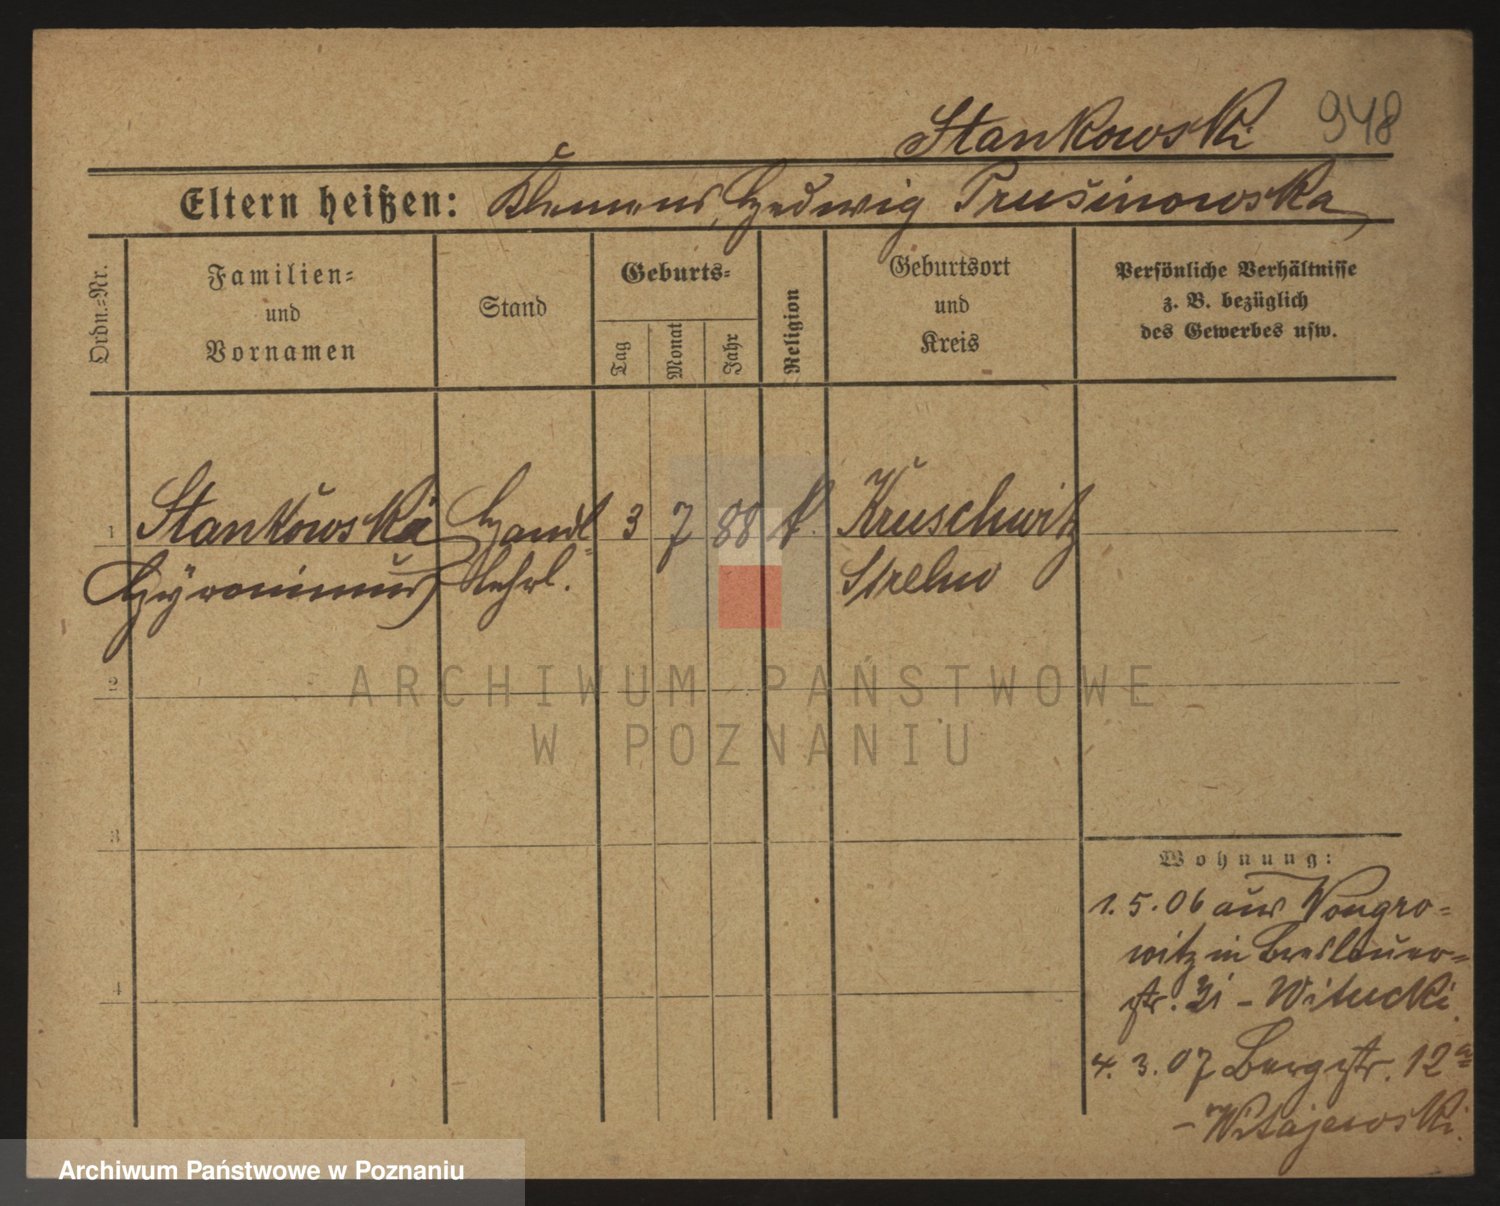 Stankowski 948
Eltern heißen: Klemens, Hedwig Trušinowska,
Ordn.=Nr.
Familien=
und
Vornamen
Stand
Geburts=
Tag
Monat
Jahr
Religion
Geburtsort
und
Kreis
Persönliche Verhältnisse
z. B. bezüglich
des Gewerbes usw.
1 Stankowski Handl= 3 7 88 k. Kruschwitz
Hyronimus Lehrl. Strelno
2
ARCHIWUM PAŃSTWOWE
W POZNANIU
3
Wohnung:
1.5.06 aus Wongro=
witz in Breslauer=
str. 31 - Witucki.
4
4.3.07 Bergstr. 12a
- Witajewski.
Archiwum Państwowe w Poznaniu